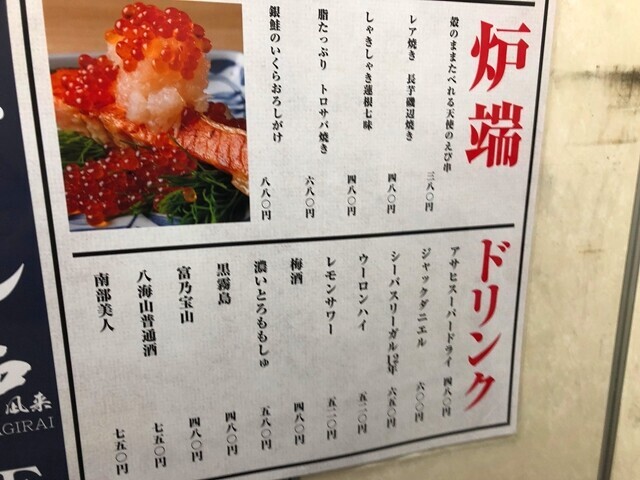 炉端
殻のままたべれる天使のえび串 三八〇円
レア焼き 長芋磯辺焼き 四八〇円
しゃきしゃき蓮根七味 四八〇円
脂たっぷり トロサバ焼き 六八〇円
銀鮭のいくらおろしがけ 八八〇円
ドリンク
アサヒスーパードライ 四八〇円
ジャックダニエル 六〇〇円
シーバスリーガル12年 六五〇円
ウーロンハイ 五二〇円
レモンサワー 五二〇円
梅酒 四八〇円
濃いとろももしゅ 五八〇円
黒霧島 四八〇円
富乃宝山 四八〇円
八海山普通酒 七五〇円
南部美人 七五〇円
凪来
GIRAI